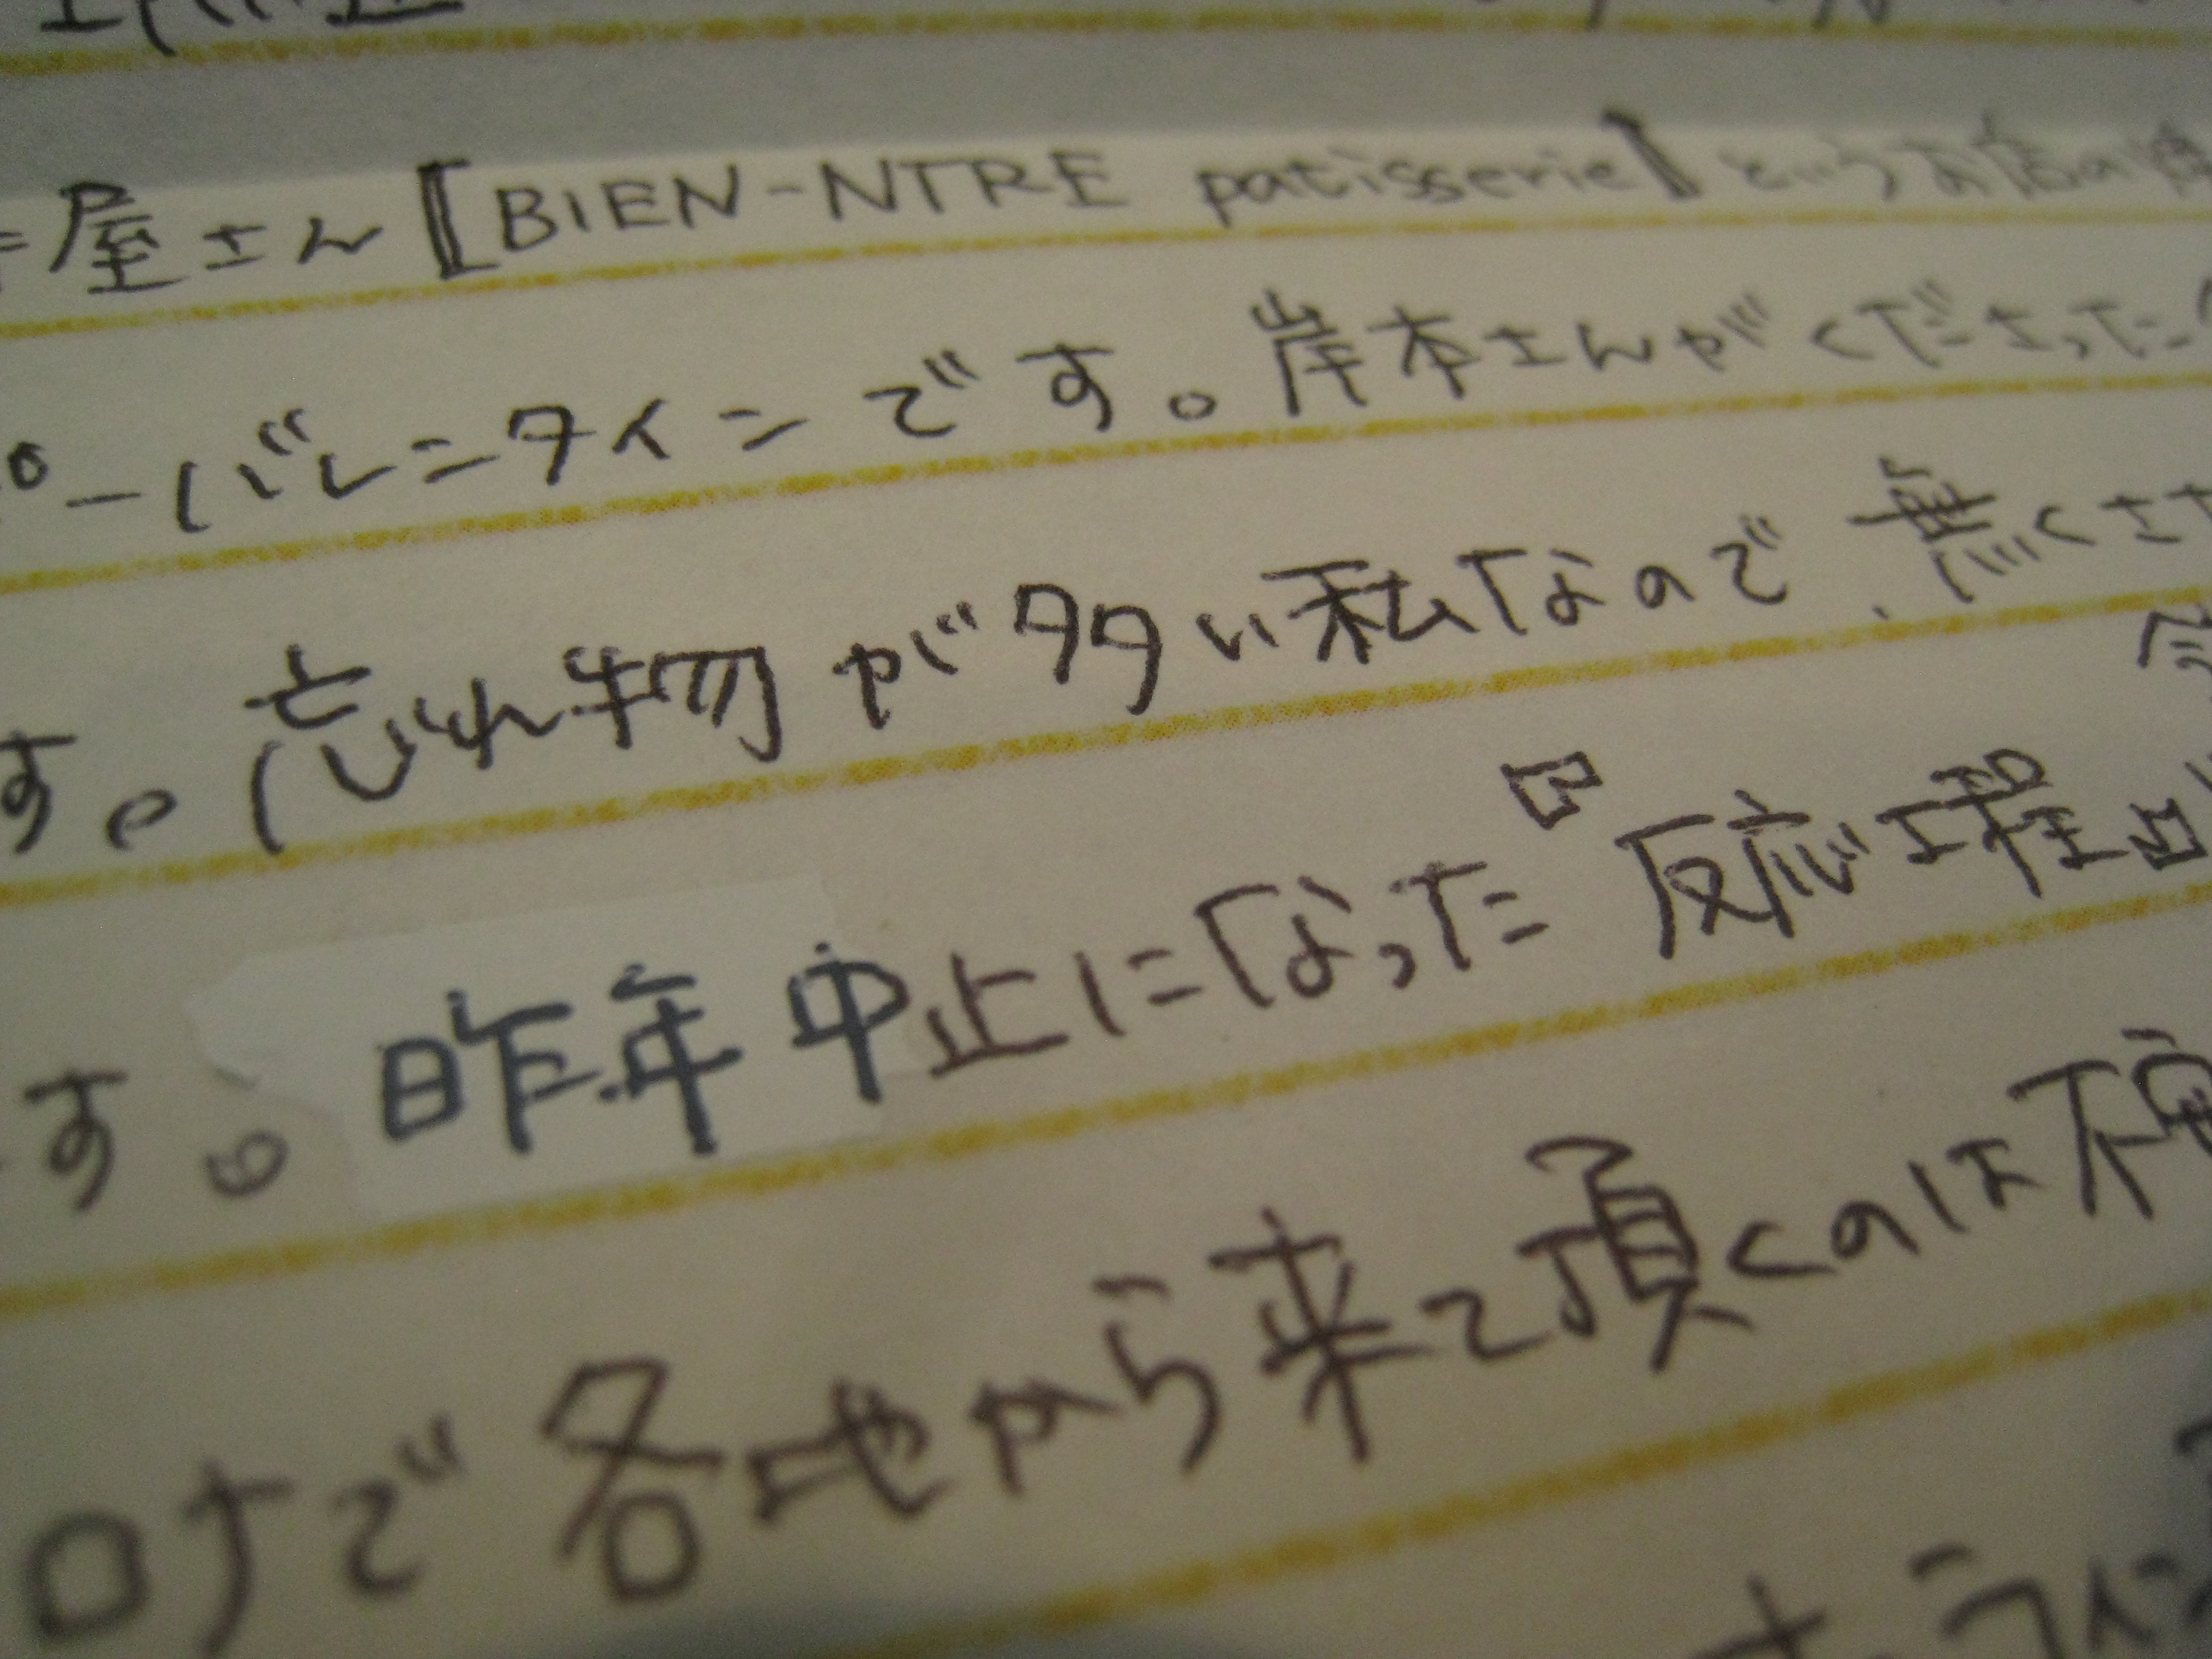 屋さん【BIEN-NTRE patisserie】というお店の
ーバレンタインです。岸本さんがくださった
す。忘れ物が多い私なので、無くさ
す。昨年中止になった『反応工程』
ロナで各地から来て頂くのは不